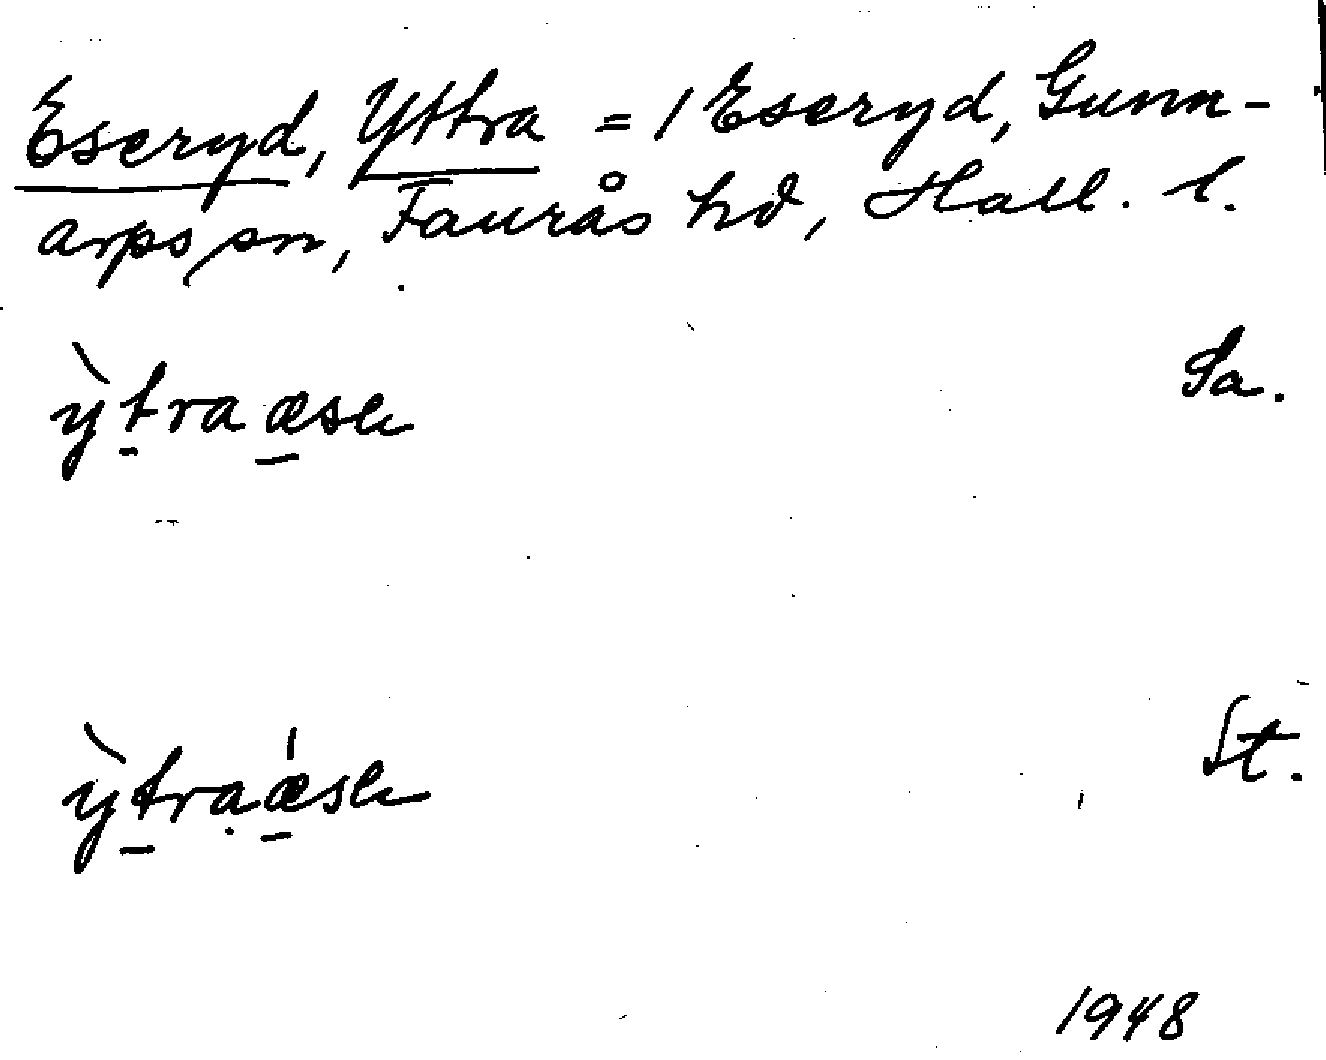 Eseryd, Yttra = 1 Eseryd, Gunn-
arps sn, Faurås hd, Hall. l.
ỳtra æse Sa.
ỳtraǽse St.
1948